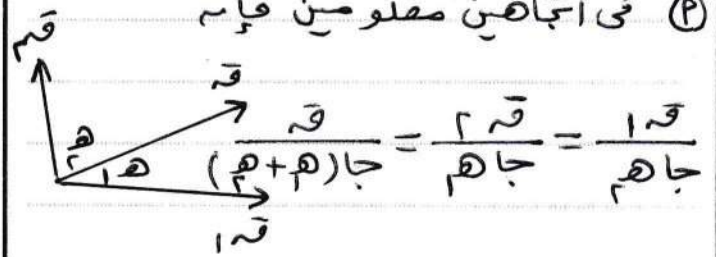 (٢) فى اتجاهين معلومين فإنه
ق٢
ق
هـ٢
هـ١
ق١
ق١ / جا هـ٢ = ق٢ / جا هـ١ = ق / جا (هـ١ + هـ٢)